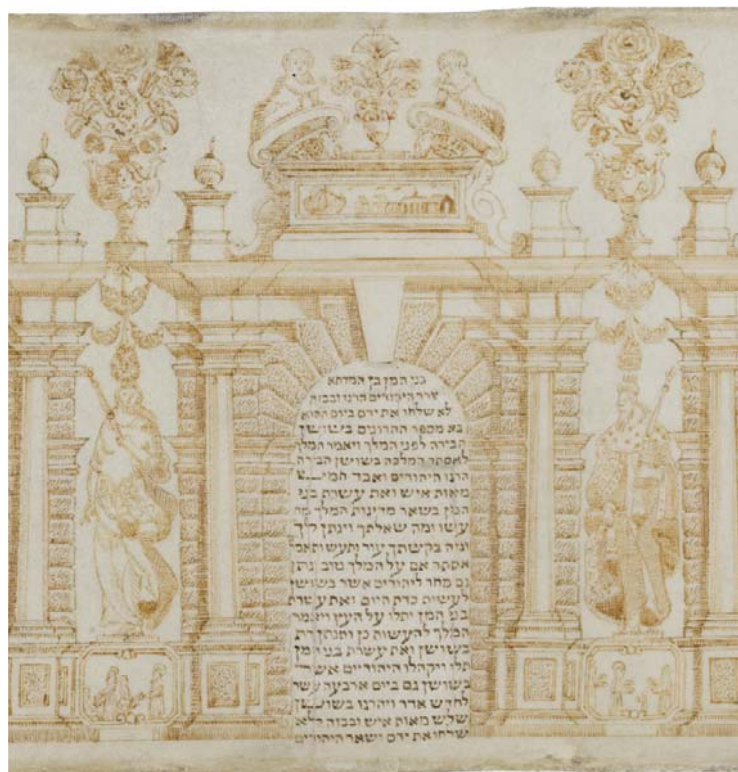 בני המן בן המדתא
צרר היהודים הרגו ובבזה
לא שלחו את ידם ביום ההוא
בא מספר ההרוגים בשושן
הבירה לפני המלך ויאמר המלך
לאסתר המלכה בשושן הבירה
הרגו היהודים ואבד חמש
מאות איש ואת עשרת בני
המן בשאר מדינות המלך מה
עשו ומה שאלתך וינתן לך
ומה בקשתך עוד ותעש ותאמר
אסתר אם על המלך טוב ינתן
גם מחר ליהודים אשר בשושן
לעשות כדת היום ואת עשרת
בני המן יתלו על העץ ויאמר
המלך להעשות כן ותנתן דת
בשושן ואת עשרת בני המן
תלו ויקהלו היהודיים אשר
בשושן גם ביום ארבעה עשר
לחדש אדר ויהרגו בשושן
שלש מאות איש ובבזה לא
שלחו את ידם ושאר היהודים